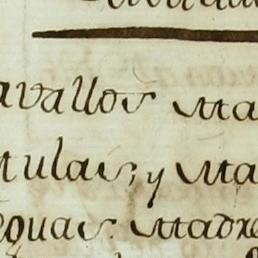 avallos Ma
tulas, y Ma
eguas Madre